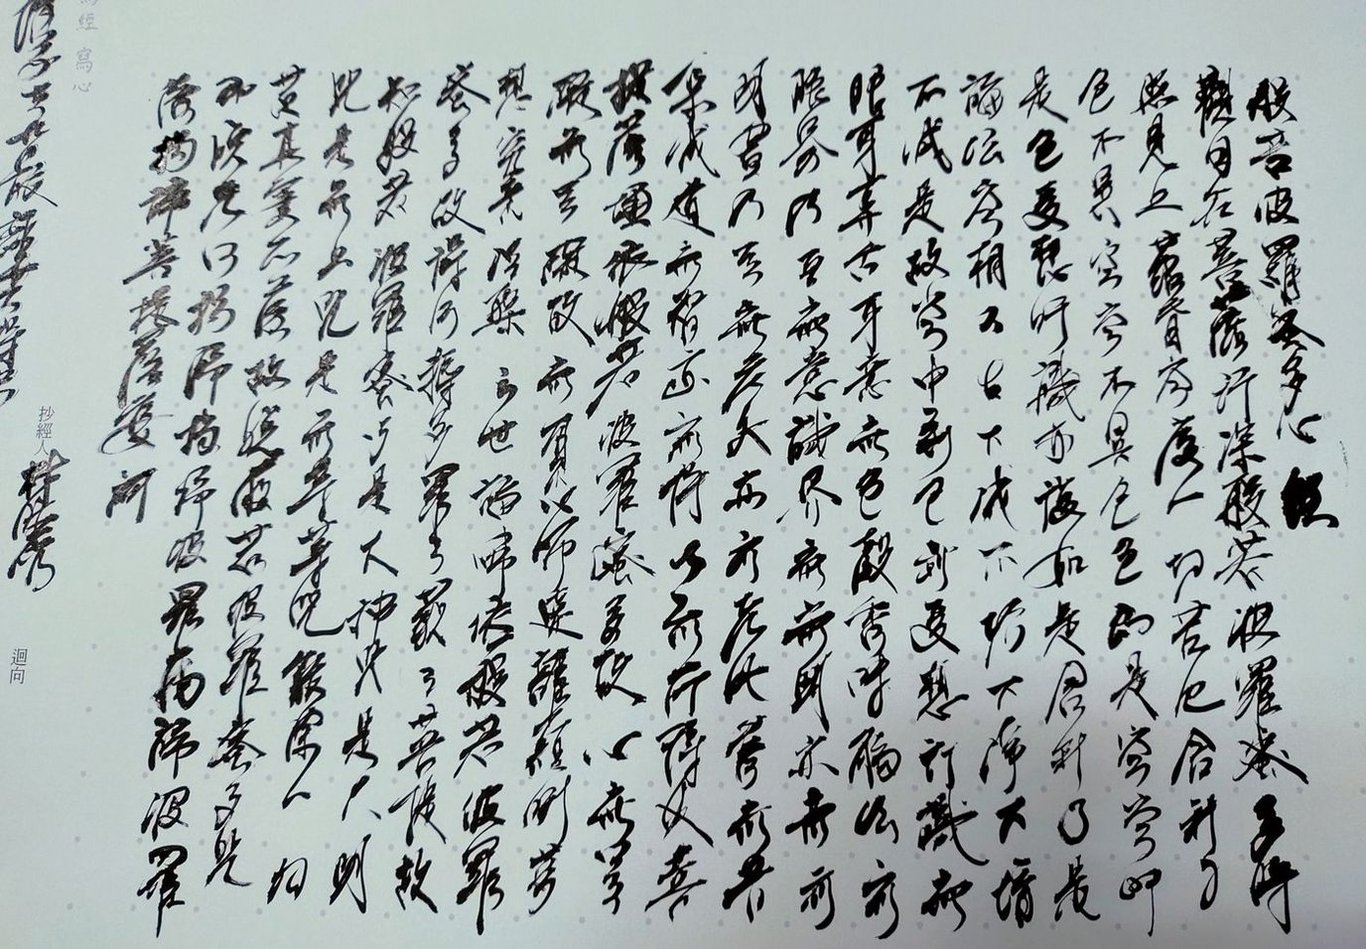 般若波羅蜜多心經
觀自在菩薩行深般若波羅蜜多時
照見五蘊皆空度一切苦厄舍利子
色不異空空不異色色即是空空即
是色受想行識亦復如是舍利子是
諸法空相不生不滅不垢不淨不增
不減是故空中無色無受想行識無
眼耳鼻舌耳意無色聲香味觸法無
眼界乃至無意識界無無明亦無無
明盡乃至無老死亦無老死盡無苦
集滅道無智亦無得以無所得故菩
提薩埵依般若波羅蜜多故心無罣
礙無罣礙故無有恐怖遠離顛倒夢
想究竟涅槃三世諸佛依般若波羅
蜜多故得阿耨多羅三藐三菩提故
知般若波羅蜜多是大神咒是大明
咒是無上咒是無等等咒能除一切
苦真實不虛故說般若波羅蜜多咒
即說咒曰揭諦揭諦波羅揭諦波羅
僧揭諦菩提薩婆訶
寫經 寫心
抄經人
迴向